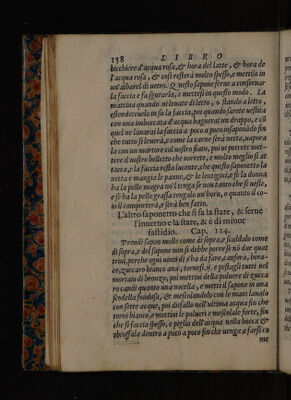 158 LIBRO
bicchiere d'acqua rosa, & hora del latte, & hora de
l'acqua rosa, & così resterà molto spesso, e mettilo in
un'albarel di uetro. Questo sapone serue a conseruar
la faccia e fà usarla, e mettesi in questo modo. La
mattina quando ui leuate di letto, o stando a letto,
estendetuelo in sù la faccia, poi quando sarete uestita
con una imboccata d'acqua bagnate ui un drappo, e cō
quel ue lanarai la faccia a poco a poco insaponādo fin
che tutto si leuerà, e come la carne serà netta, uapora
la con un mortore col uostro fiato, poi ui potrete met-
tere il uostro belletto che uorrete, e molto meglio si at
tacca, e la faccia resta lucente, che questo saponetto la
netta e mangia le panne, & le lentegini, e se la donna
ha la pelle magra nō l tenga se non tanto che si ueste,
e se ha la pelle grassa tengalo un'hora, o quanto il co-
io il comporterà, e serà ben fatto.
L'altro saponetto che si fa la state, & serue
l'inuerno e la state, & è di minor
fastidio. Cap. 114.
Prendi sapon molle come di sopra, e scaldalo come
di sopra, e del sapone non si debbe porre se nō due quat
trini, perche ogni uinti dì s'ha da fare, ausora, bora-
ce, zuccaro bianco ana, tornesi. y. e pestagli tutti nel
mortaio di bronzo, poi mettino della poluere di zucca
ro candi quanto una nocella, e metti il sapone in una
scodella fundosa, & mescolandolo con le mani lavalo
con sette acque, poi disfallo nell'ultima acqua fin che
torni bianco, e mettiui le polueri e mescolale forte, fin
che si faccia spesso, e piglia dell'acqua nella bocca &
sbroffala dentro a poco a poco fin che uenga a farsi co
me